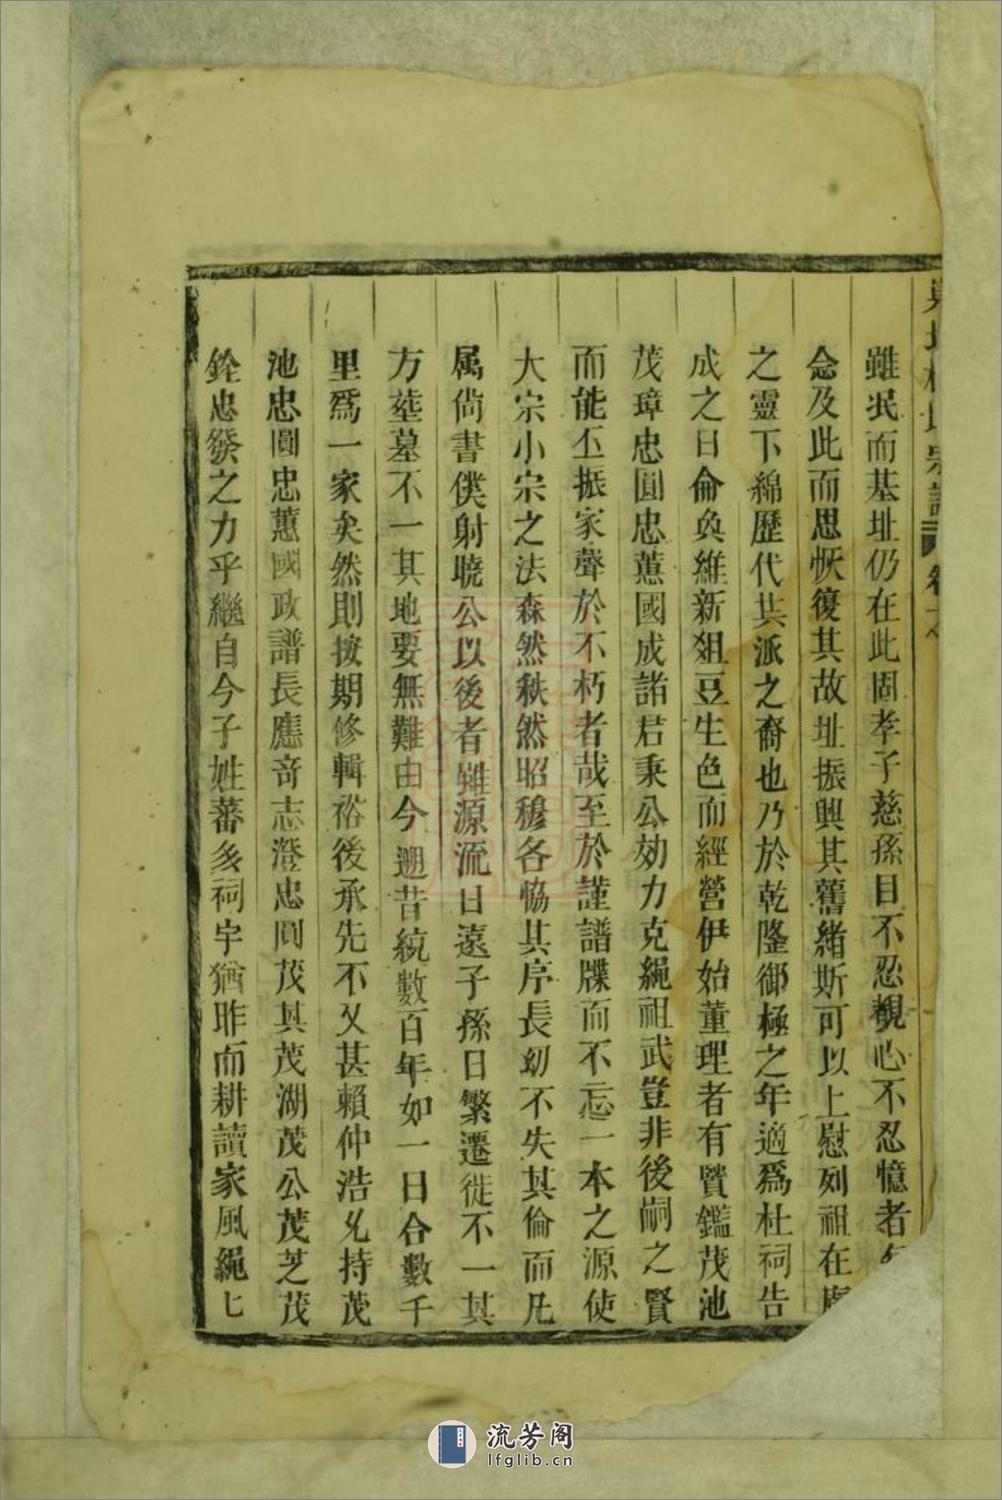 杜氏宗譜 卷之
雖泯而基址仍在此固孝子慈孫目不忍覩心不忍憶者
念及此而思恢復其故址振興其舊緒斯可以上慰列祖在
之靈下綿歷代共派之裔也乃於乾隆御極之年適爲杜祠告
成之日侖奐維新俎豆生色而經營伊始董理者有賢鑑茂池
茂璋忠圓忠蕙國成諾君秉公効力克繩祖武豈非後嗣之賢
而能丕振家聲於不朽者哉至於謹譜牒而不忘一本之源使
大宗小宗之法森然秩然昭穆各恊其序長幼不失其倫而凡
属尚書僕射曉公以後者雖源流日遠子孫日繁遷徙不一其
方塟墓不一其地要無難由今遡昔統數百年如一日合數千
里爲一家矣然則按期修輯裕後承先不又甚賴仲浩兄持茂
池忠圓忠蕙國政譜長應竒志澄忠圓茂其茂湖茂公茂芝茂
銓忠發之力乎繼自今子姓蕃多祠宇猶昨而耕讀家風繩七
流芳阁
lfglib.cn